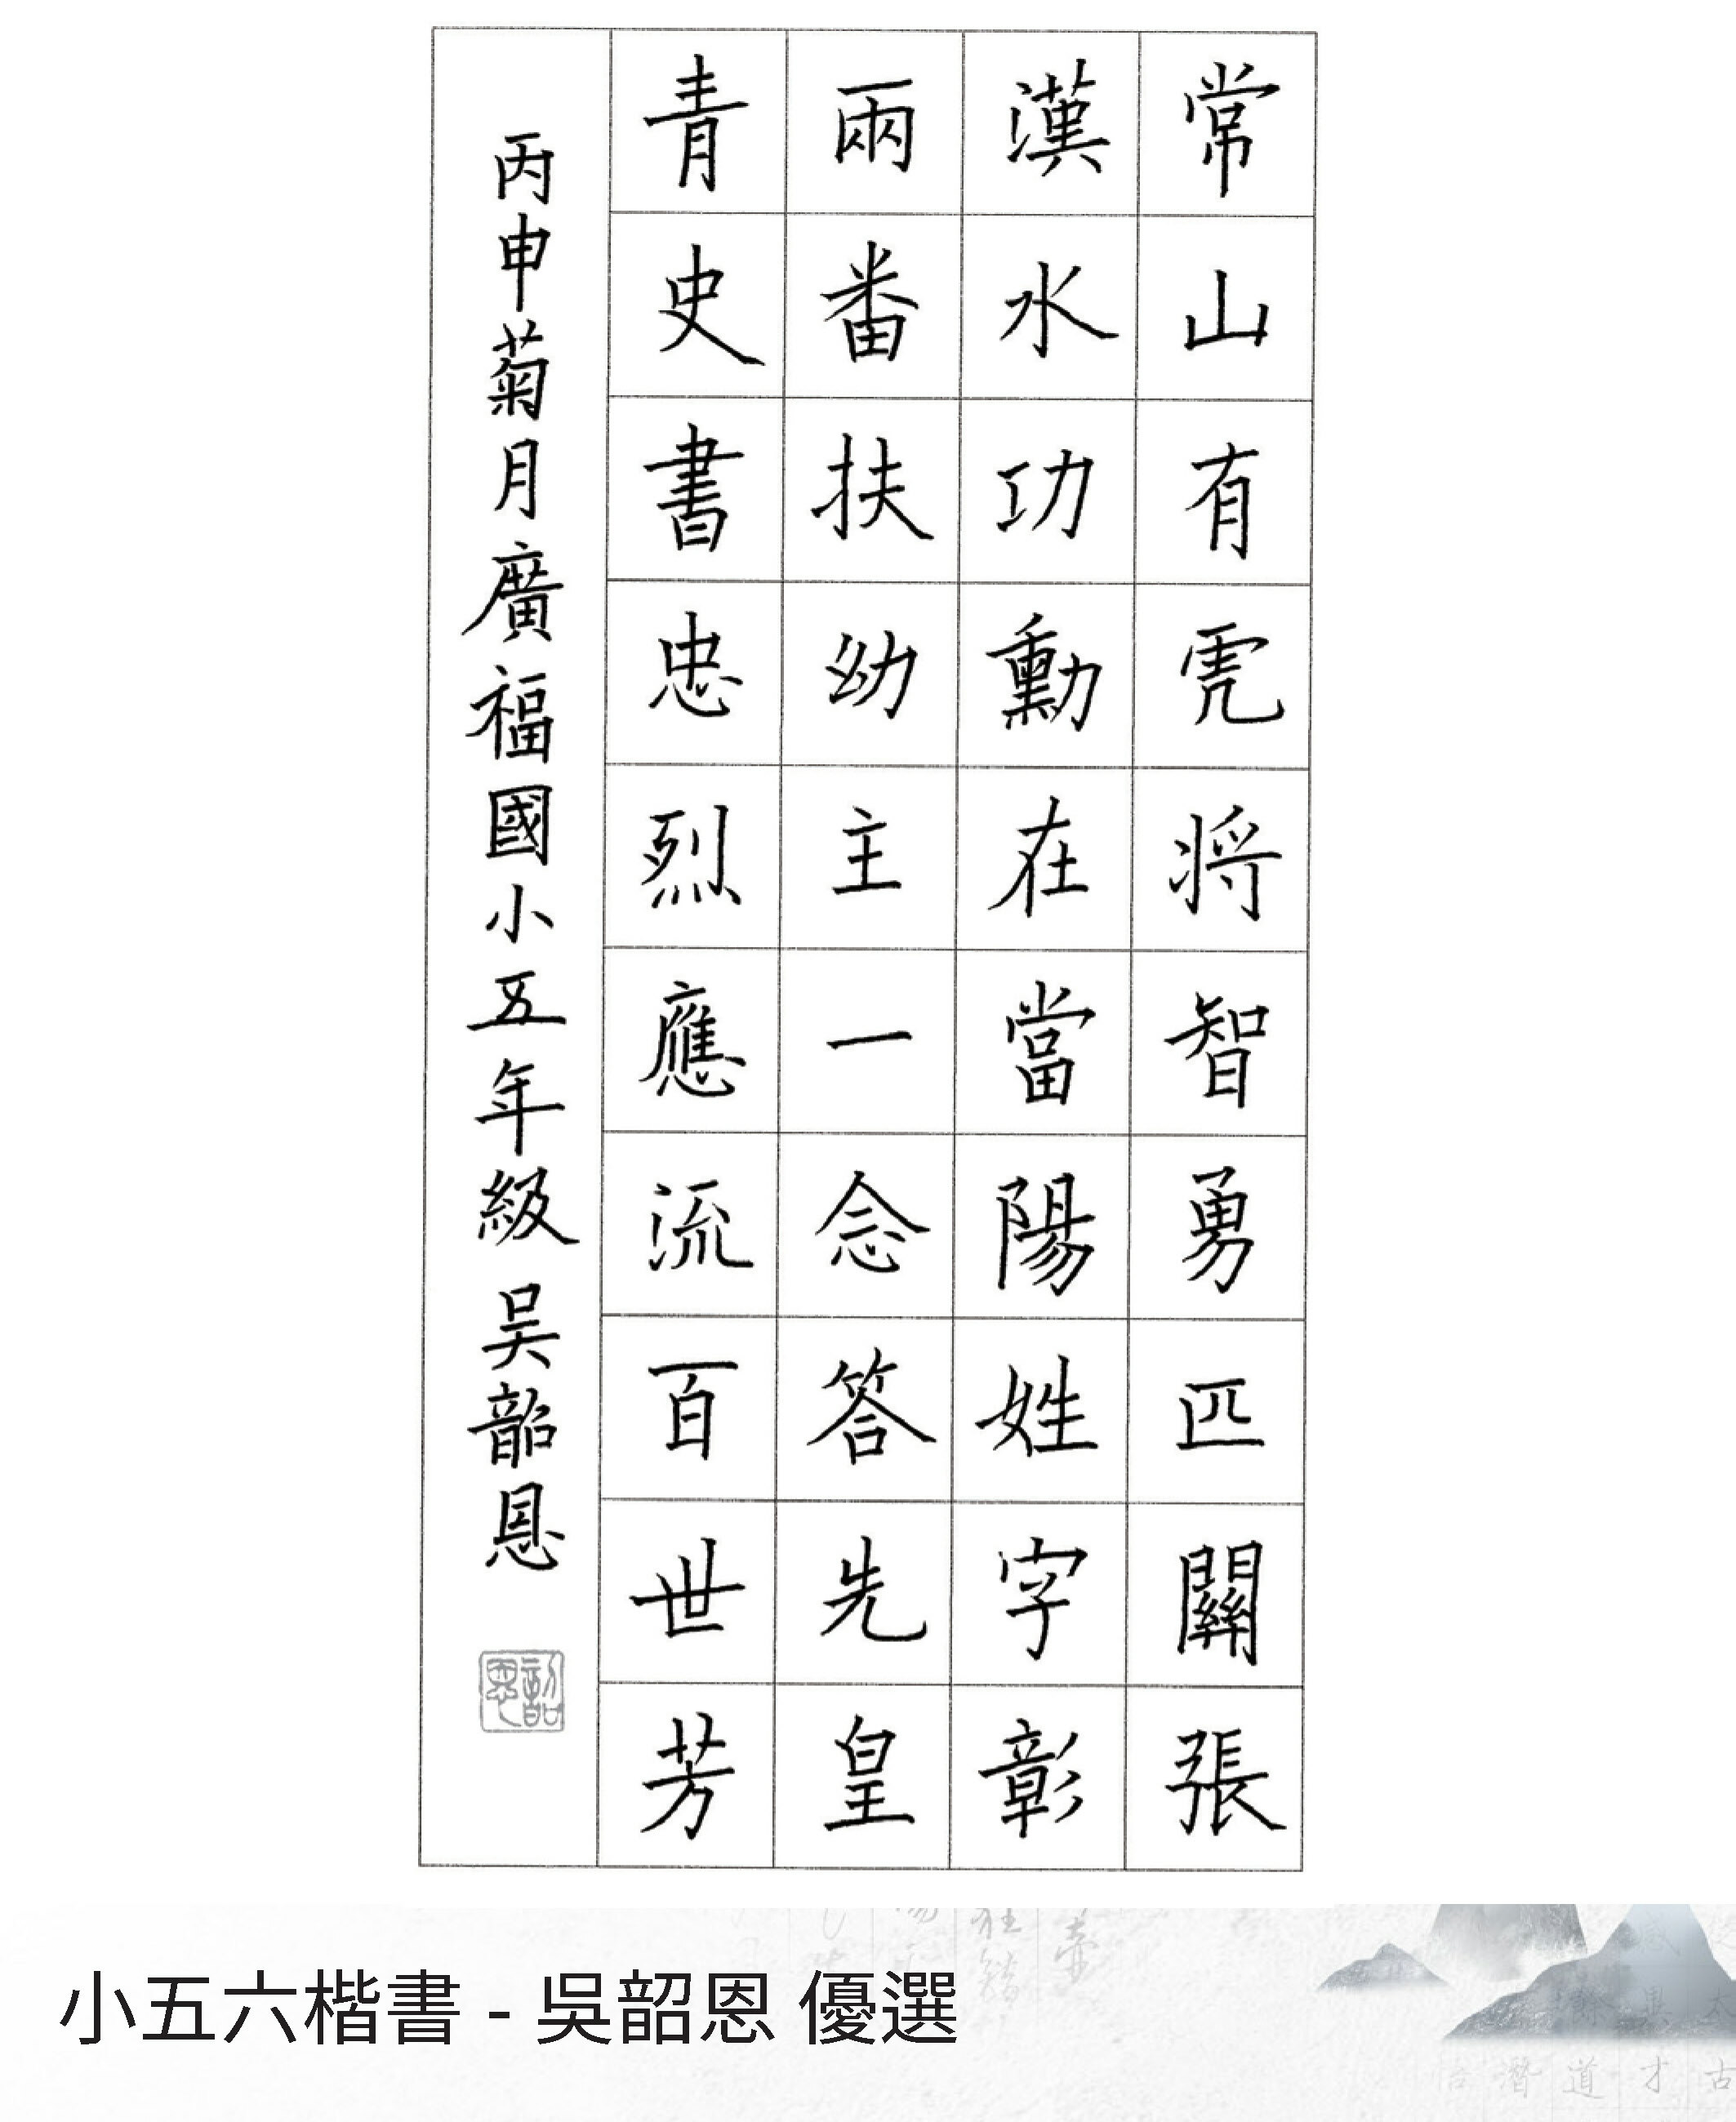 常山有虎將智勇匹關張
漢水功勳在當陽姓字彰
兩番扶幼主一念答先皇
青史書忠烈應流百世芳
丙申菊月廣福國小五年級吳韶恩
韶恩
小五六楷書 - 吳韶恩 優選